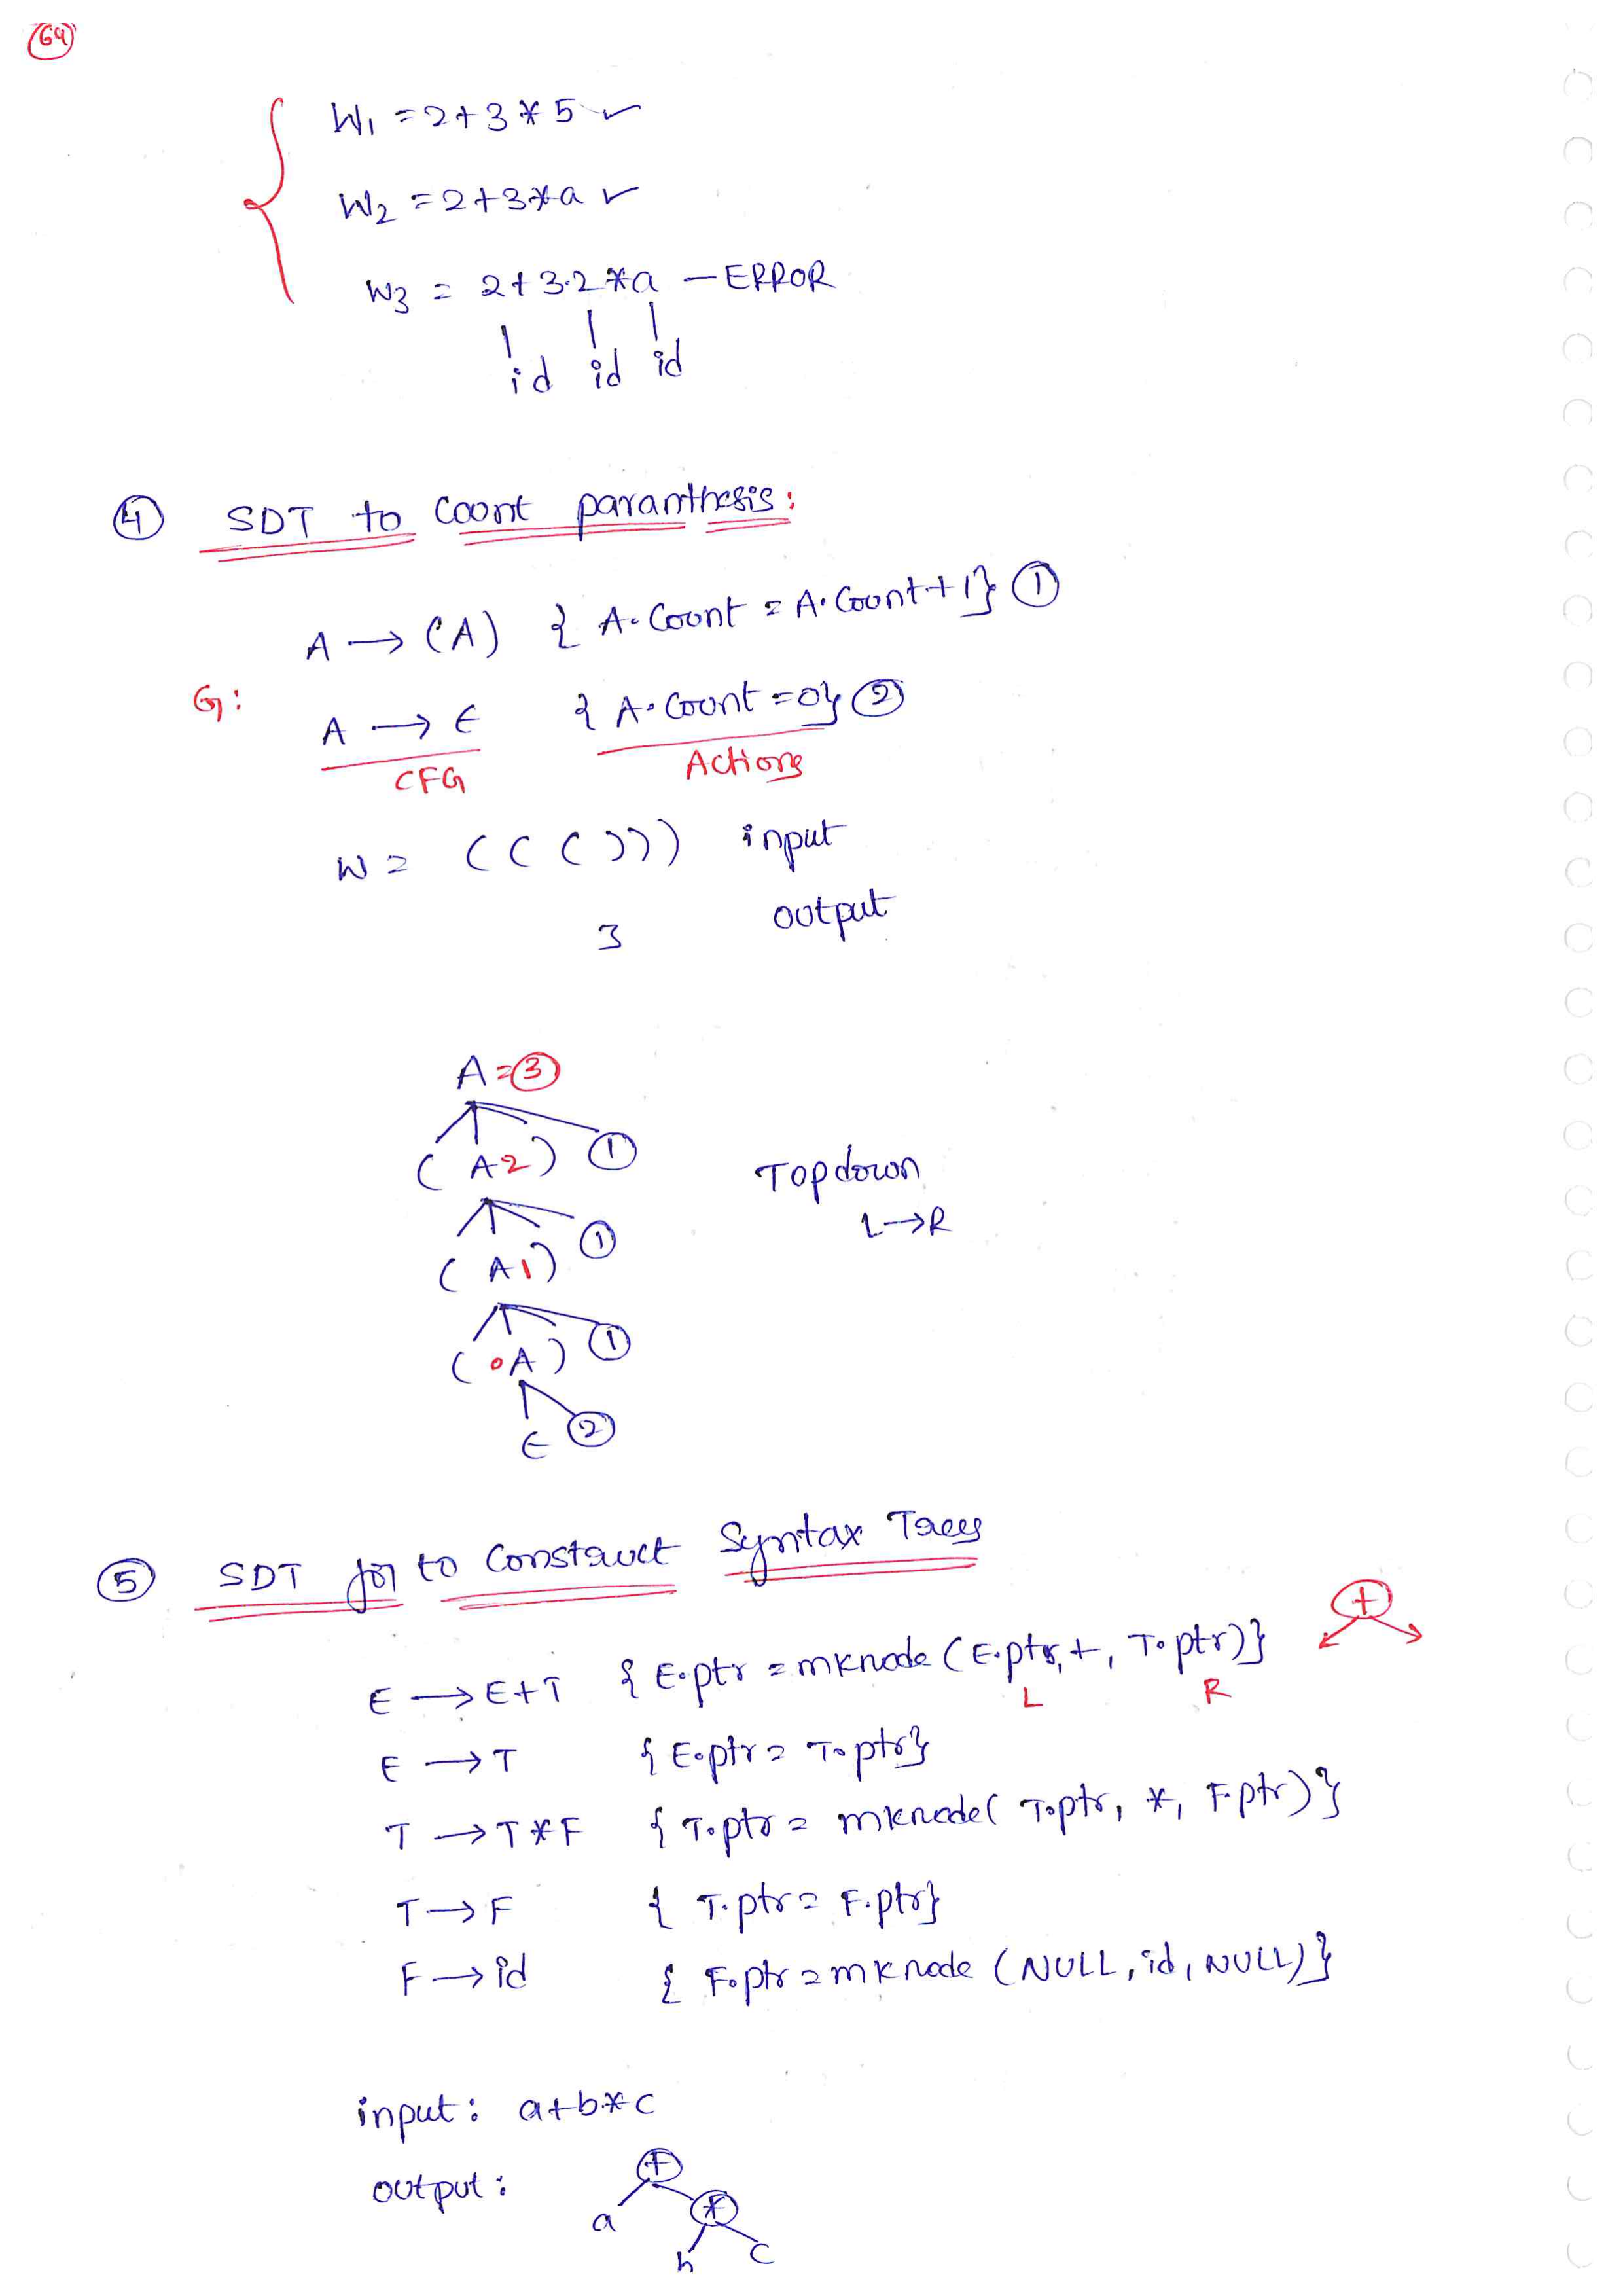 64
W1 = 2+3*5 ✓
W2 = 2+3*a ✓
W3 = 2+3.2*a — ERROR
id id id
④ SDT to Count paranthesis:
A → (A) { A.Count = A.Count+1} ①
G:
A → ε { A.Count = 0} ②
CFG Actions
W = ((())) input
3 output
A = ③
( A2 ) ①
Topdown
L→R
( A1 ) ①
( 0A ) ①
ε ②
⑤ SDT for to Construct Syntax Trees
+
E → E+T { E.ptr = mknode (E.ptr, +, T.ptr)}
L R
E → T { E.ptr = T.ptr}
T → T*F { T.ptr = mknode( T.ptr, *, F.ptr)}
T → F { T.ptr = F.ptr}
F → id { F.ptr = mknode (NULL, id, NULL)}
input: a+b*c
output: +
a *
b c